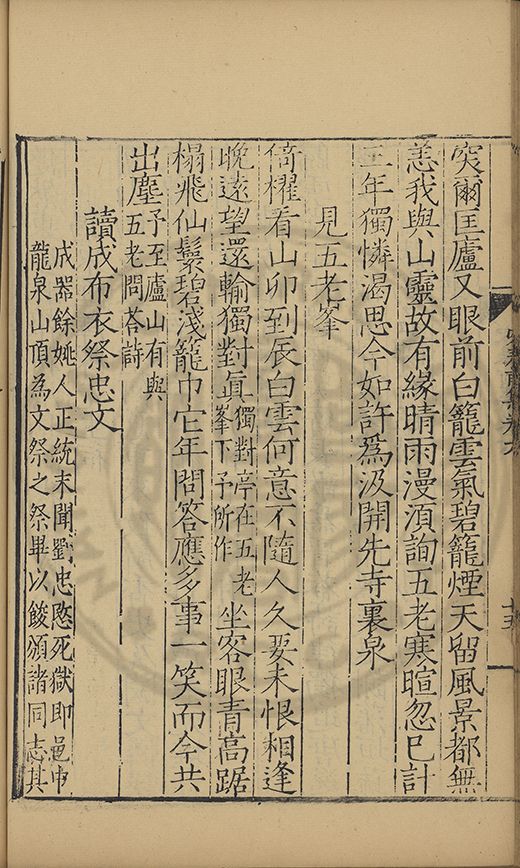 突爾匡廬又眼前白籠雲氣碧籠煙天留風景都無
恙我與山靈故有緣晴雨漫湏詢五老寒暄忽已計
三年獨憐渴思今如許爲汲開先寺裏泉
見五老峯
倚櫂看山卯到辰白雲何意不隨人久要未恨相逢
晚遠望還輸獨對眞獨對亭在五老峯下予所作坐客眼青高踞
榻飛仙鬢碧淺籠巾它年問答應多事一笑而今共
出塵予至廬山有與五老問荅詩
讀成布衣祭忠文
成器餘姚人正統末聞劉忠愍死獄即邑中
龍泉山頂為文祭之祭畢以餕頒諸同志其